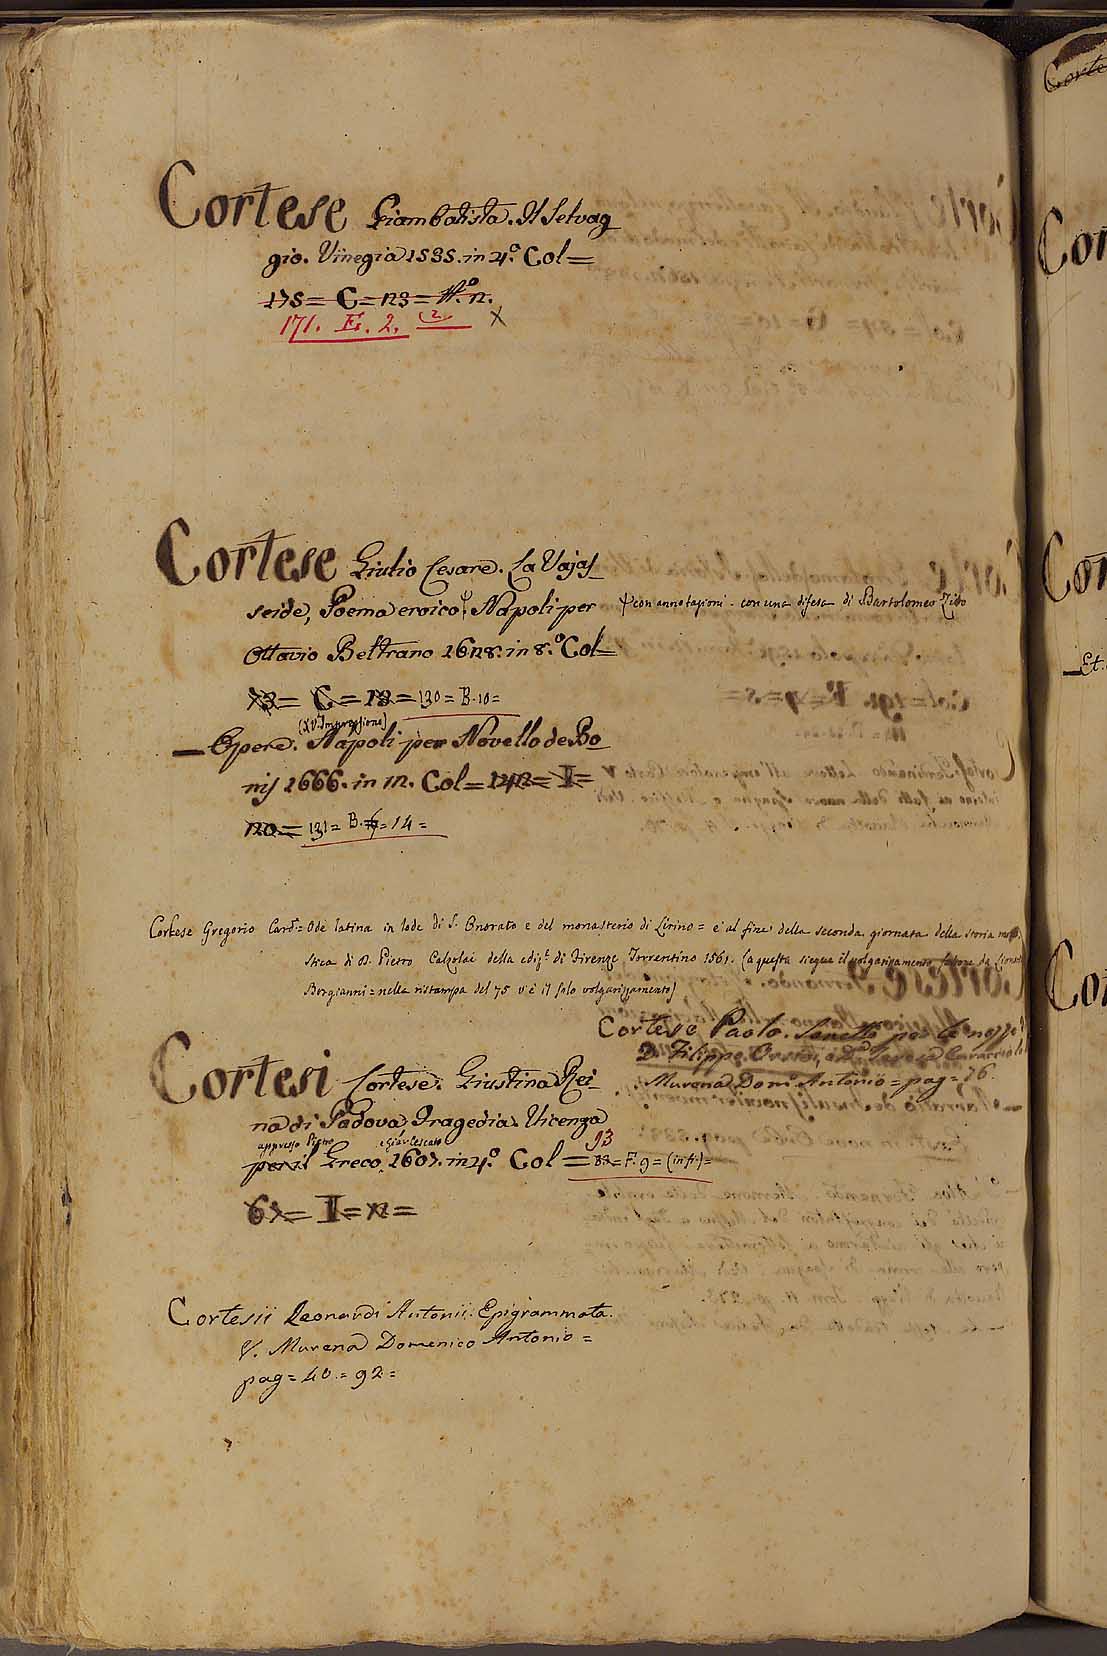 Cortese Giambatista. Il Selvag
gio. Vinegia 1535. in 4.º Col=
175= C= 23= N.º 2.
171. F. 2. (2) X
Cortese Giulio Cesare. La Vajas
seide, Poema eroico. Napoli per
Ψ con annotazioni. con una difesa di Bartolomeo Zito
Ottavio Beltrano 1628. in 8.º Col=
C = 130= B. 10=
(XV. Impressione)
— Opere. Napoli per Novello de Bo
nis 1666. in 12. Col= 142= I=
20= 131= B. = 14=
Cortese Gregorio Card.= Ode latina in lode di S. Onorato e del monasterio di Lirino= e' al fine della seconda giornata della storia
stica di D. Pietro Calzolai della ediz.e di Firenze Torrentino 1561. (a questa siegue il volgarizzamento fattone da
Borgianni= nella ristampa del 75 v'è il solo volgarizzamento)
Cortese Paolo. Sonetto per le nozze
D. Filippo Orsini, e D.
Murena Dom.º Antonio= pag= 76.
Cortesi Cortese. Giustina Rei
na di Padova, Tragedia. Vicenza
appresso Pietro e Francesco
per il Greco. 1607. in 4.º Col= 93 F. 9= (in fi)=
I=
Cortesii Leonardi Antonii. Epigrammata.
V. Murena Domenico Antonio=
pag= 40.= 92=
Corte
Cor
Cor
— Et.
Cor